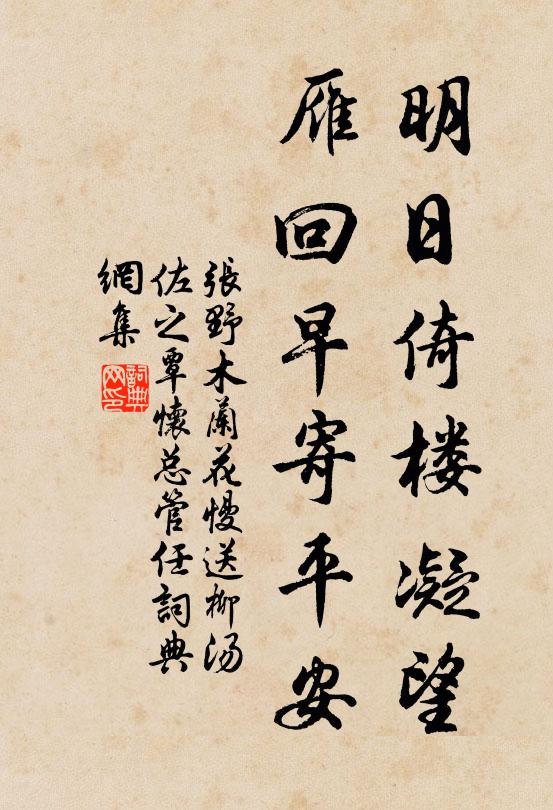 明日倚楼凝望
雁回早寄平安
張野木蘭花慢送柳湯
佐之覃懷总管任詞典
網集
詞典网印